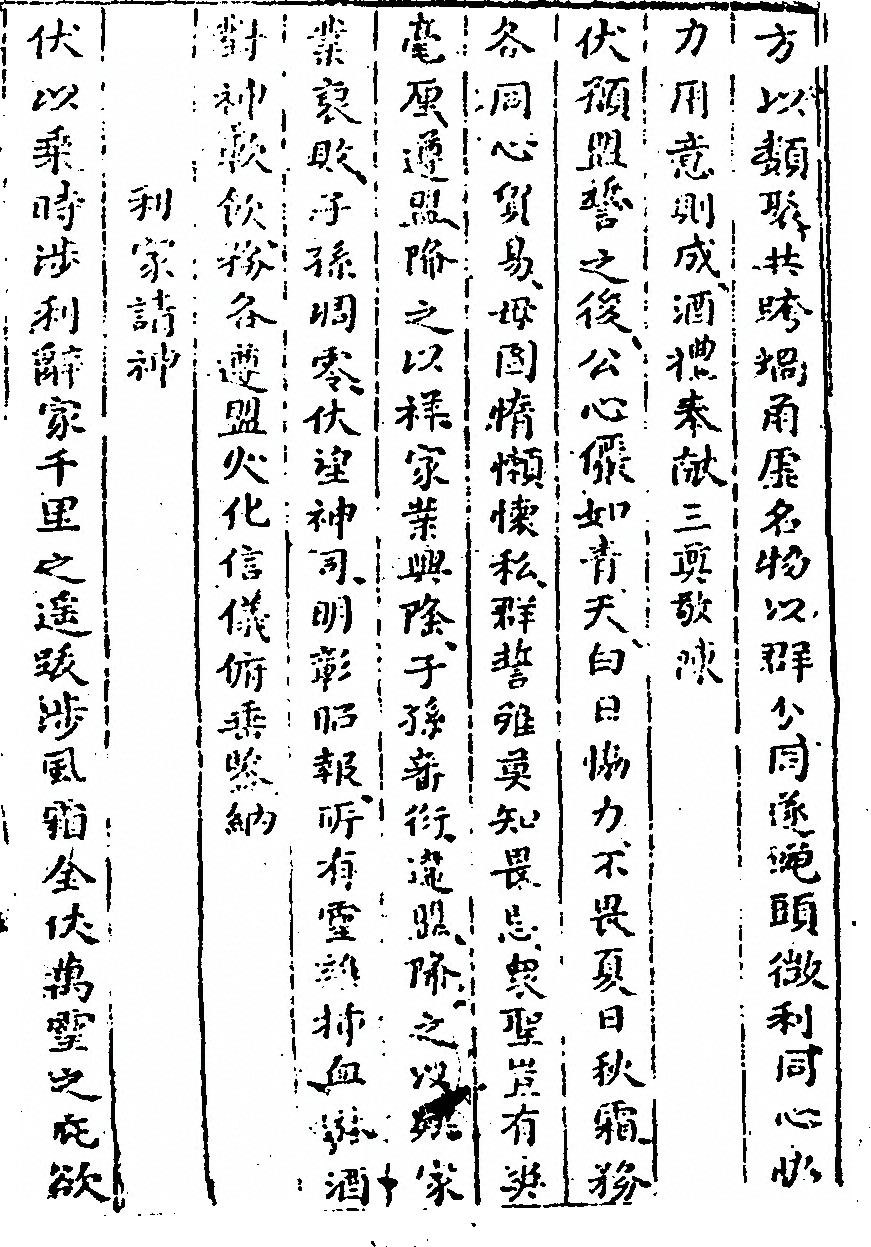 方以類聚共跨蝸角虛名物以群分同逐蝇頭微利同心協
力用意則成酒禮奉献三奠敬陳
伏預盟誓之後公心儼如青天白日協力不畏夏日秋霜務
各同心貨易毋图惰懶懐私群誓雖莫知畏忌衆聖豈有
毫厘遵盟降之以祥家業興隆子孫蕃衍違盟降之以殃家
業衰敗子孫凋零伏望神司明彰昭報所有靈雞插血酒
對神歃飲務各遵盟火化信儀俯垂鑒納
利家請神
伏以乘時涉利辭家千里之遥跋涉風霜全伏萬靈之庇欲